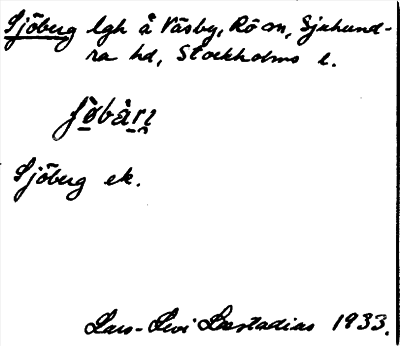 Sjöberg lgh å Väsby, Rö sn, Sjuhund-
ra hd, Stockholms l.
Sjöberg ek.
Lars-Levi Læstadius 1933.